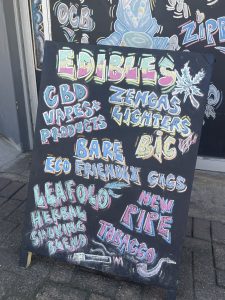 OCB
ZIPP
EDIBLES
CBD
VAPES+
PRODUCTS
ZENGAS
LIGHTERS
BIC
BARE
ECO FRIENDLY
CIGS
LEAFOLO
HERBAL
SMOKING
BLEND
NEW
PIPE
TOBACCO